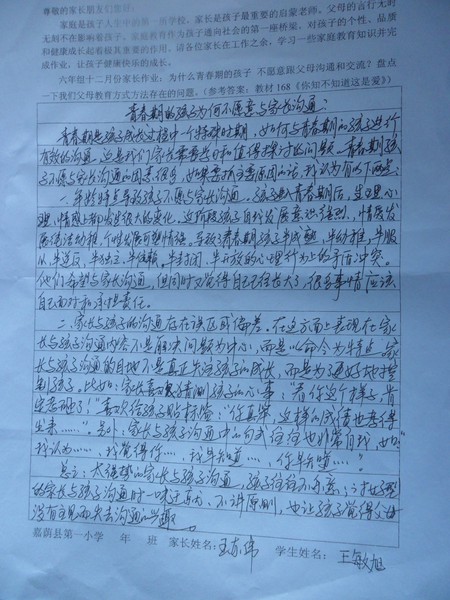 尊敬的家长朋友们您好！
家庭是孩子人生中的第一所学校，家长是孩子最重要的启蒙老师。父母的言行无时
无刻不在影响着孩子。家庭教育作为孩子通向社会的第一座桥梁，对孩子的个性、品质
和健康成长起着极其重要的作用。请各位家长在工作之余，学习一些家庭教育知识并完
成作业，让孩子健康快乐的成长。
六年组十二月份家长作业：为什么青春期的孩子 不愿意跟父母沟通和交流？盘点
一下我们父母教育方式方法存在的问题。（参考答案：教材168《你知不知道这是爱》）
青春期的孩子为何不愿意与家长沟通？
青春期是孩子成长过程中一个特殊时期，如何与青春期的孩子进行
有效的沟通，这是我们家长需要学习和值得探讨的问题。青春期孩
子不愿与家长沟通的因素很多，如果要找主要原因的话，我认为有以下两点：
一、年龄特点导致孩子不愿与家长沟通。孩子进入青春期后，生理、心
理、情感上都发生很大的变化，这阶段孩子自我发展意识强烈，情感发
展使活动幼稚，个性发展可塑性强。导致了青春期孩子半成熟、半幼稚，半服
从、半逆反，半独立、半依赖，半封闭、半开放的心理行为上的矛盾冲突。
他们希望与家长沟通，但同时又觉得自己已经长大了，很多事情应该
自己面对和承担责任。
二、家长与孩子的沟通存在误区或偏差。在这方面上表现在家
长与孩子沟通内容不是解决问题为中心，而是以命令为特点。家
长与孩子沟通的目的不是真正为了孩子的成长，而是为了更好地控
制孩子。比如：家长喜欢猜测孩子的心事：“看你这个样子，肯
定考砸了；”喜欢给孩子贴标签：“你真笨，这样的成绩也考得
出来……”。另外，家长与孩子沟通中的句式往往也非常自我，如：“
我认为……，我觉得你……，我早知道……，你早知道……”
总之：太强势的家长与孩子沟通，孩子往往不乐意；讨好型
的家长与孩子沟通时一味迁就、不讲原则，也让孩子觉得父母
没有主见而失去沟通的兴趣。
嘉荫县第一小学 年 班 家长姓名：王东伟 学生姓名：王敏旭